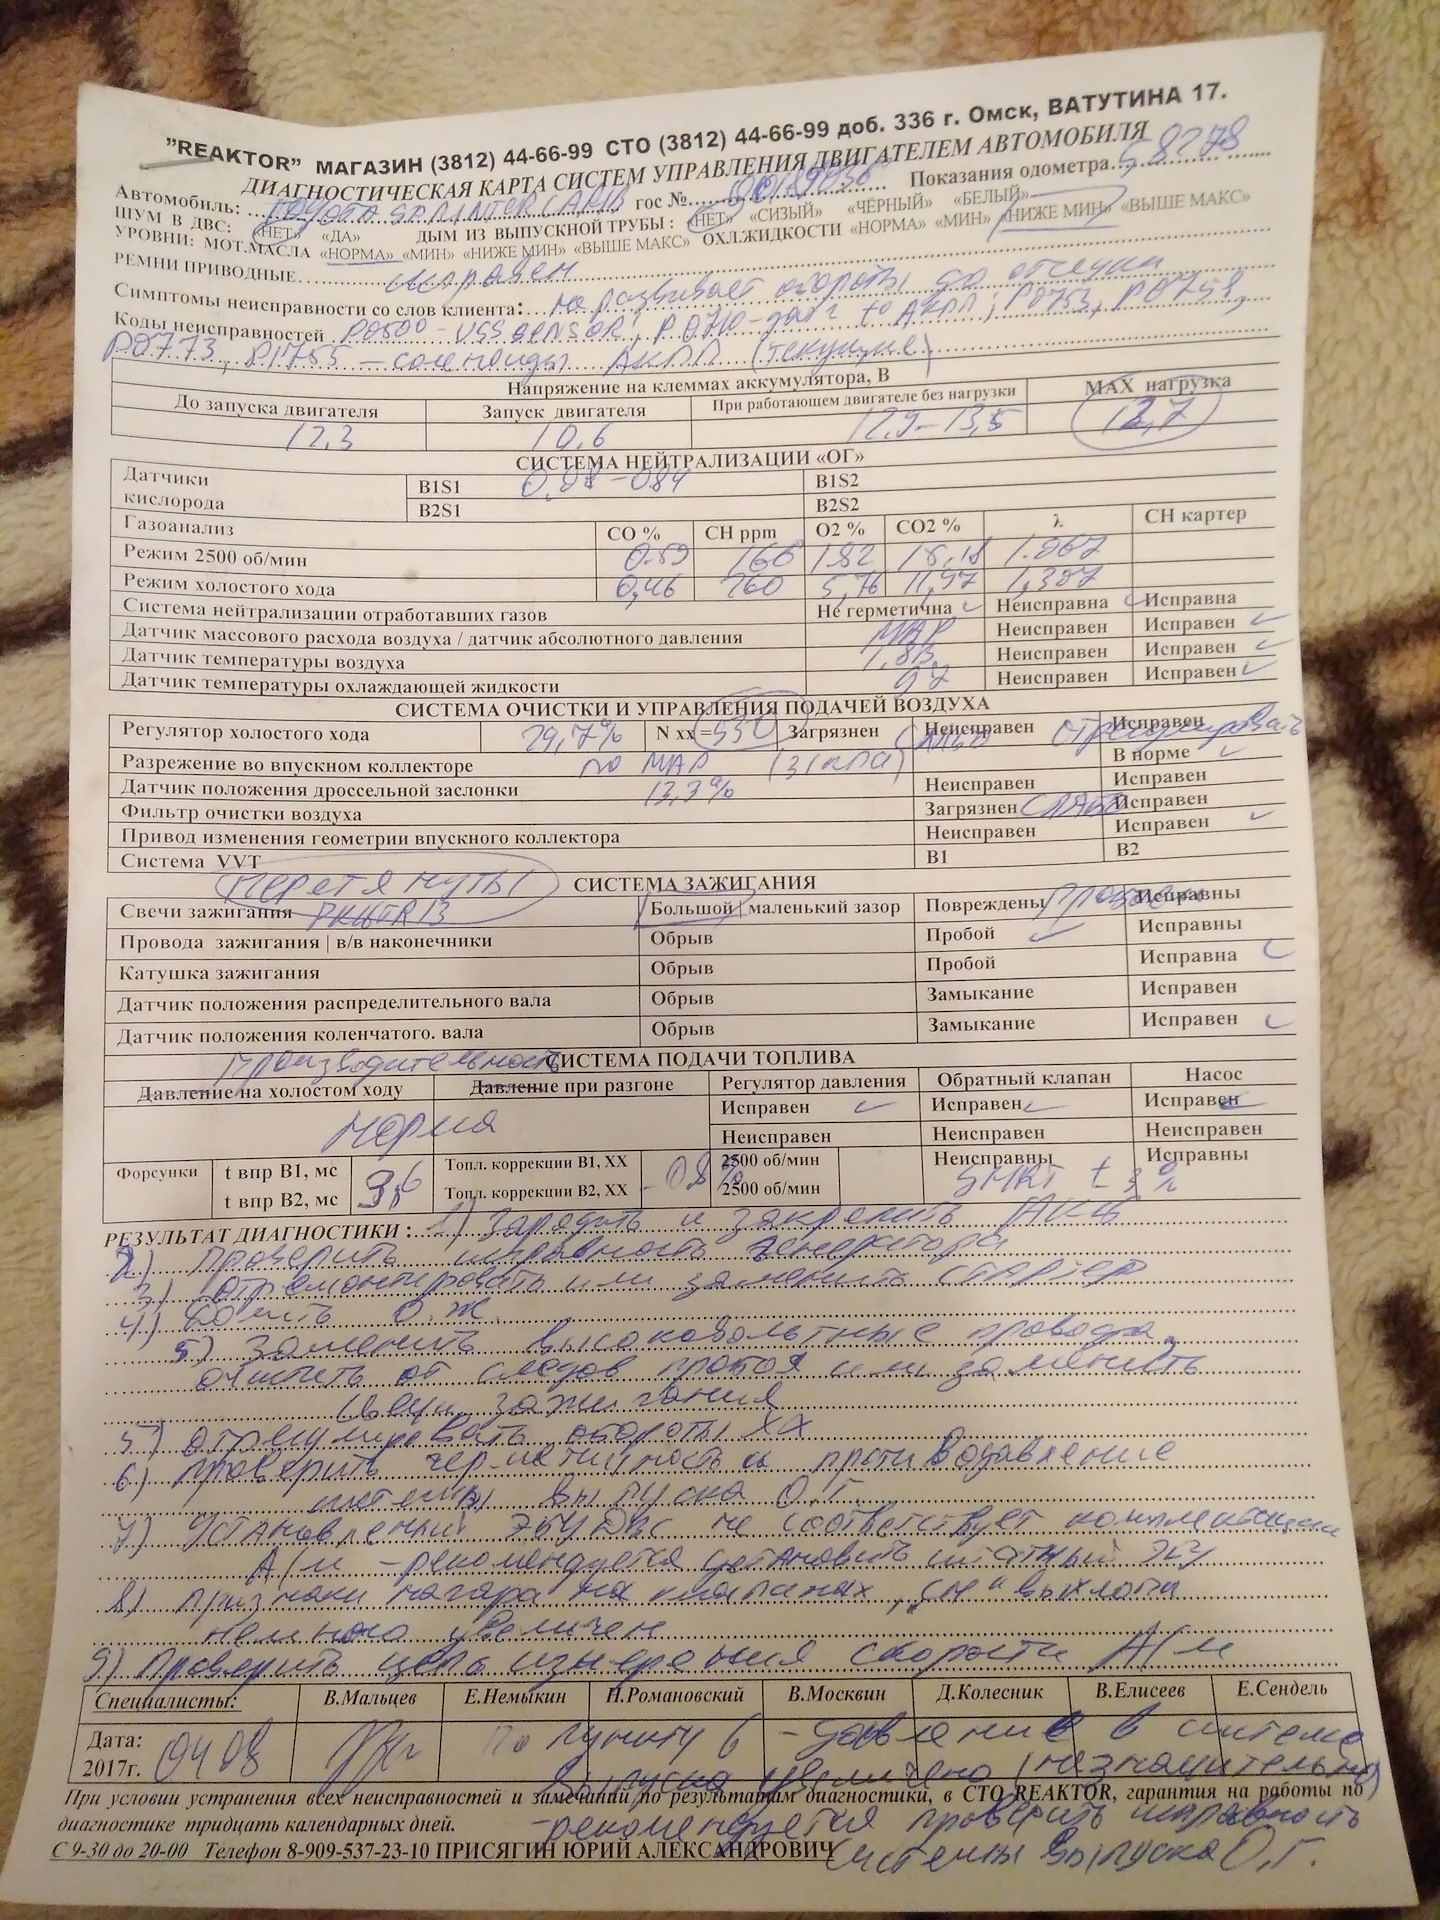 "REAKTOR" МАГАЗИН (3812) 44-66-99 СТО (3812) 44-66-99 доб. 336 г. Омск, ВАТУТИНА 17.
ДИАГНОСТИЧЕСКАЯ КАРТА СИСТЕМ УПРАВЛЕНИЯ ДВИГАТЕЛЕМ АВТОМОБИЛЯ
Автомобиль: TOYOTA SPRINTER CARIB гос № Показания одометра 58278
ШУМ В ДВС: «НЕТ» «ДА» ДЫМ ИЗ ВЫПУСКНОЙ ТРУБЫ: «НЕТ» «СИЗЫЙ» «ЧЁРНЫЙ» «БЕЛЫЙ»
УРОВНИ: МОТ.МАСЛА «НОРМА» «МИН» «НИЖЕ МИН» «ВЫШЕ МАКС» ОХЛ.ЖИДКОСТИ «НОРМА» «МИН» «НИЖЕ МИН» «ВЫШЕ МАКС»
РЕМНИ ПРИВОДНЫЕ исправен
Симптомы неисправности со слов клиента: не развивает обороты до отсечки
Коды неисправностей P0500 - VSS SENSOR; P0710 - датч t° АКПП; P0753, P0758,
P0773, P1755 - соленоиды АКПП (текущие)
Напряжение на клеммах аккумулятора, В
До запуска двигателя Запуск двигателя При работающем двигателе без нагрузки MAX нагрузка
12,3 10,6 12,9 - 13,5 12,7
СИСТЕМА НЕЙТРАЛИЗАЦИИ «ОГ»
Датчики кислорода B1S1 B1S2
B2S1 B2S2
Газоанализ CO % CH ppm O2 % CO2 % λ CH картер
Режим 2500 об/мин 0.59 166 1.82 1.067
Режим холостого хода 0,46 260 5,76 11,97 1,307
Система нейтрализации отработавших газов Не герметична Неисправна Исправна
Датчик массового расхода воздуха / датчик абсолютного давления MAP Неисправен Исправен
Датчик температуры воздуха 1,8В Неисправен Исправен
Датчик температуры охлаждающей жидкости 97 Неисправен Исправен
СИСТЕМА ОЧИСТКИ И УПРАВЛЕНИЯ ПОДАЧЕЙ ВОЗДУХА
Регулятор холостого хода 29,7% N хх = 550 Загрязнен слабо Неисправен Исправен отрегулировать
Разрежение во впускном коллекторе по MAP (31кПа) В норме
Датчик положения дроссельной заслонки 13,3% Неисправен Исправен
Фильтр очистки воздуха Загрязнен слабо Исправен
Привод изменения геометрии впускного коллектора Неисправен Исправен
Система VVT B1 B2
перетянуты СИСТЕМА ЗАЖИГАНИЯ
Свечи зажигания Большой | маленький зазор Повреждены пробоем Исправны
Провода зажигания | в/в наконечники Обрыв Пробой Исправны
Катушка зажигания Обрыв Пробой Исправна
Датчик положения распределительного вала Обрыв Замыкание Исправен
Датчик положения коленчатого. вала Обрыв Замыкание Исправен
Производительность СИСТЕМА ПОДАЧИ ТОПЛИВА
Давление на холостом ходу Давление при разгоне Регулятор давления Обратный клапан Насос
норма Исправен Исправен Исправен
Неисправен Неисправен Неисправен
Форсунки t впр B1, мс Топл. коррекции B1, XX 2500 об/мин Неисправны Исправны
t впр B2, мс Топл. коррекции B2, XX 2500 об/мин
РЕЗУЛЬТАТ ДИАГНОСТИКИ: 1) Зарядить и закрепить АКБ
2) проверить исправность генератора
3) отремонтировать или заменить стартер
4) долить О.Ж.
5) заменить высоковольтные провода,
очистить от следов пробоя или заменить
свечи зажигания
5') отрегулировать обороты ХХ
6) проверить герметичность и противодавление
системы выпуска О.Г.
7) Установленный ЭБУ ДВС не соответствует комплектации
А/м - рекомендуется установить штатный ЭБУ
8) признаки нагара на клапанах, „CH" выхлопа
немного увеличен
9) Проверить цепь измерения скорости А/м
Специалисты: В.Мальцев Е.Немыкин Н.Романовский В.Москвин Д.Колесник В.Елисеев Е.Сендель
Дата: 2017г. 04 08 По пункту 6 - давление в системе
выпуска увеличено (незначительно)
При условии устранения всех неисправностей и замечаний по результатам диагностики, в СТО REAKTOR, гарантия на работы по
диагностике тридцать календарных дней. - рекомендуется проверить исправность
С 9-30 до 20-00 Телефон 8-909-537-23-10 ПРИСЯГИН ЮРИЙ АЛЕКСАНДРОВИЧ системы выпуска О.Г.